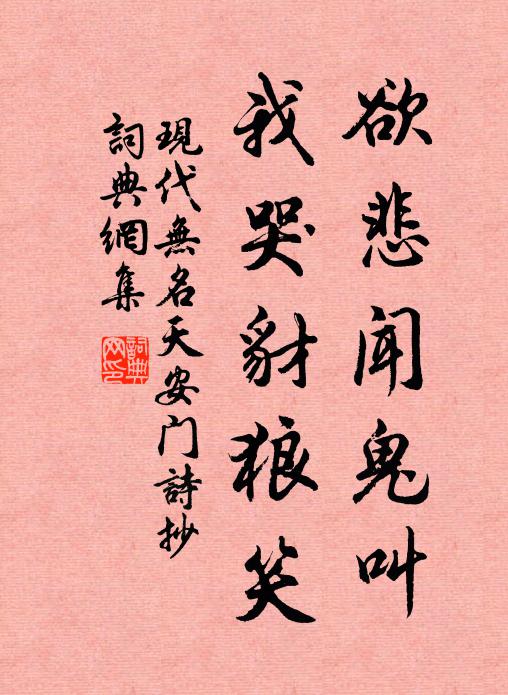 欲悲闻鬼叫
我哭豺狼笑
現代無名天安门詩抄
詞典網集
詞典网印